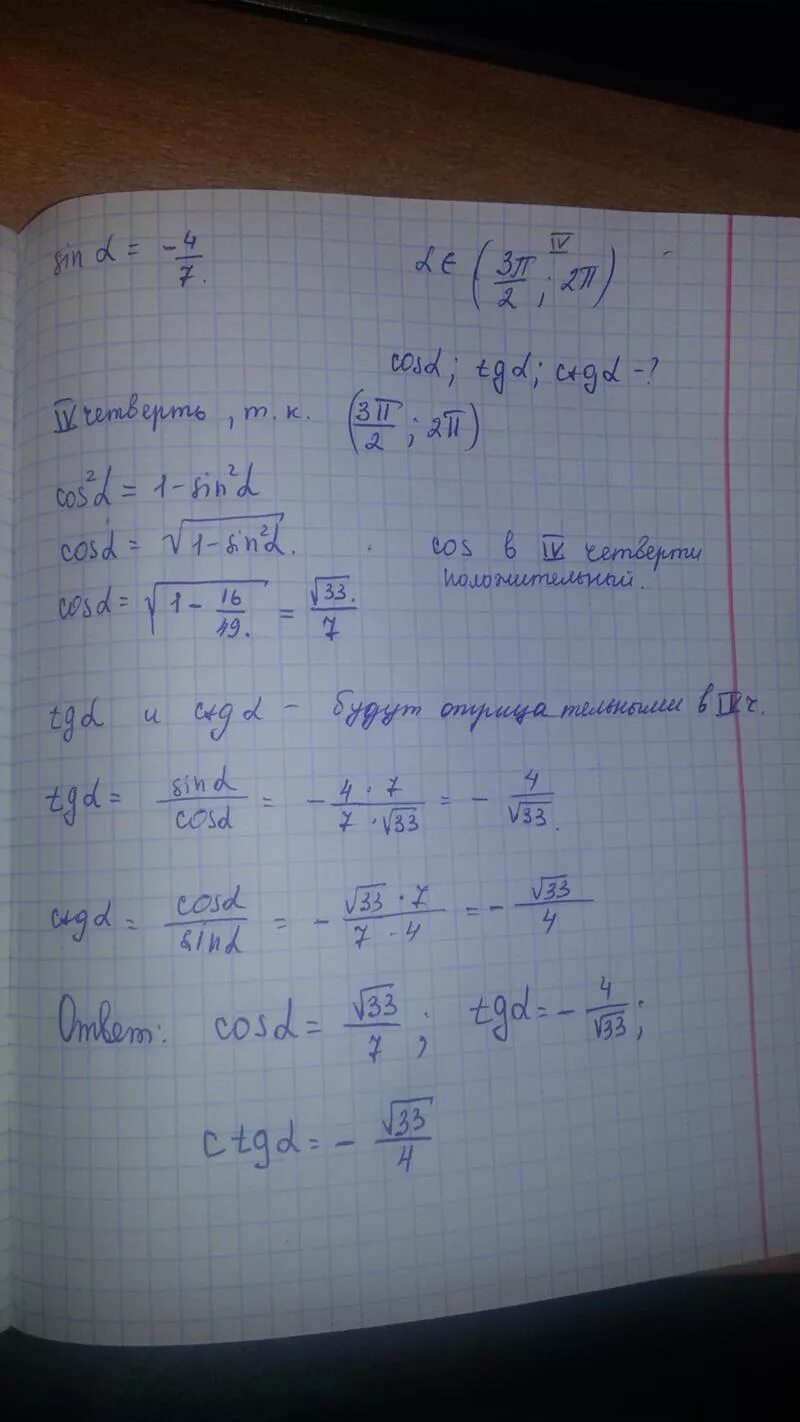 sin α = -4/7. α ∈ (3π/2 ; 2π) IV
cosα; tgα; ctgα -?
IV четверть, т.к. (3π/2 ; 2π)
cos²α = 1-sin²α
cosα = √(1-sin²α). cos в IV четверти
положительный.
cosα = √(1 - 16/49.) = √33./7
tgα и ctgα - будут отрицательными в IV ч.
tgα = sinα/cosα = - 4·7/7·√33 = - 4/√33.
ctgα = cosα/sinα = - √33·7/7·4 = - √33/4
Ответ: cosα = √33/7; tgα = - 4/√33;
ctgα = - √33/4